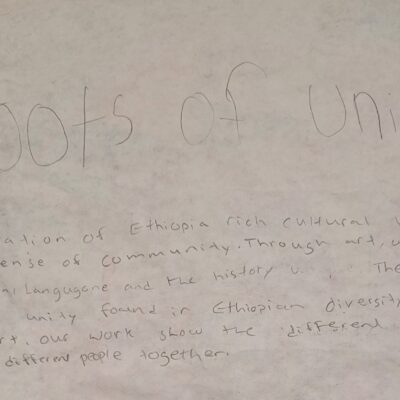 oots of Uni
ation of Ethiopia rich cultural
ense of community. Through art,
Langugane and the history The
unity found in Ethiopian diversity
rt. our work show the different
different people together.